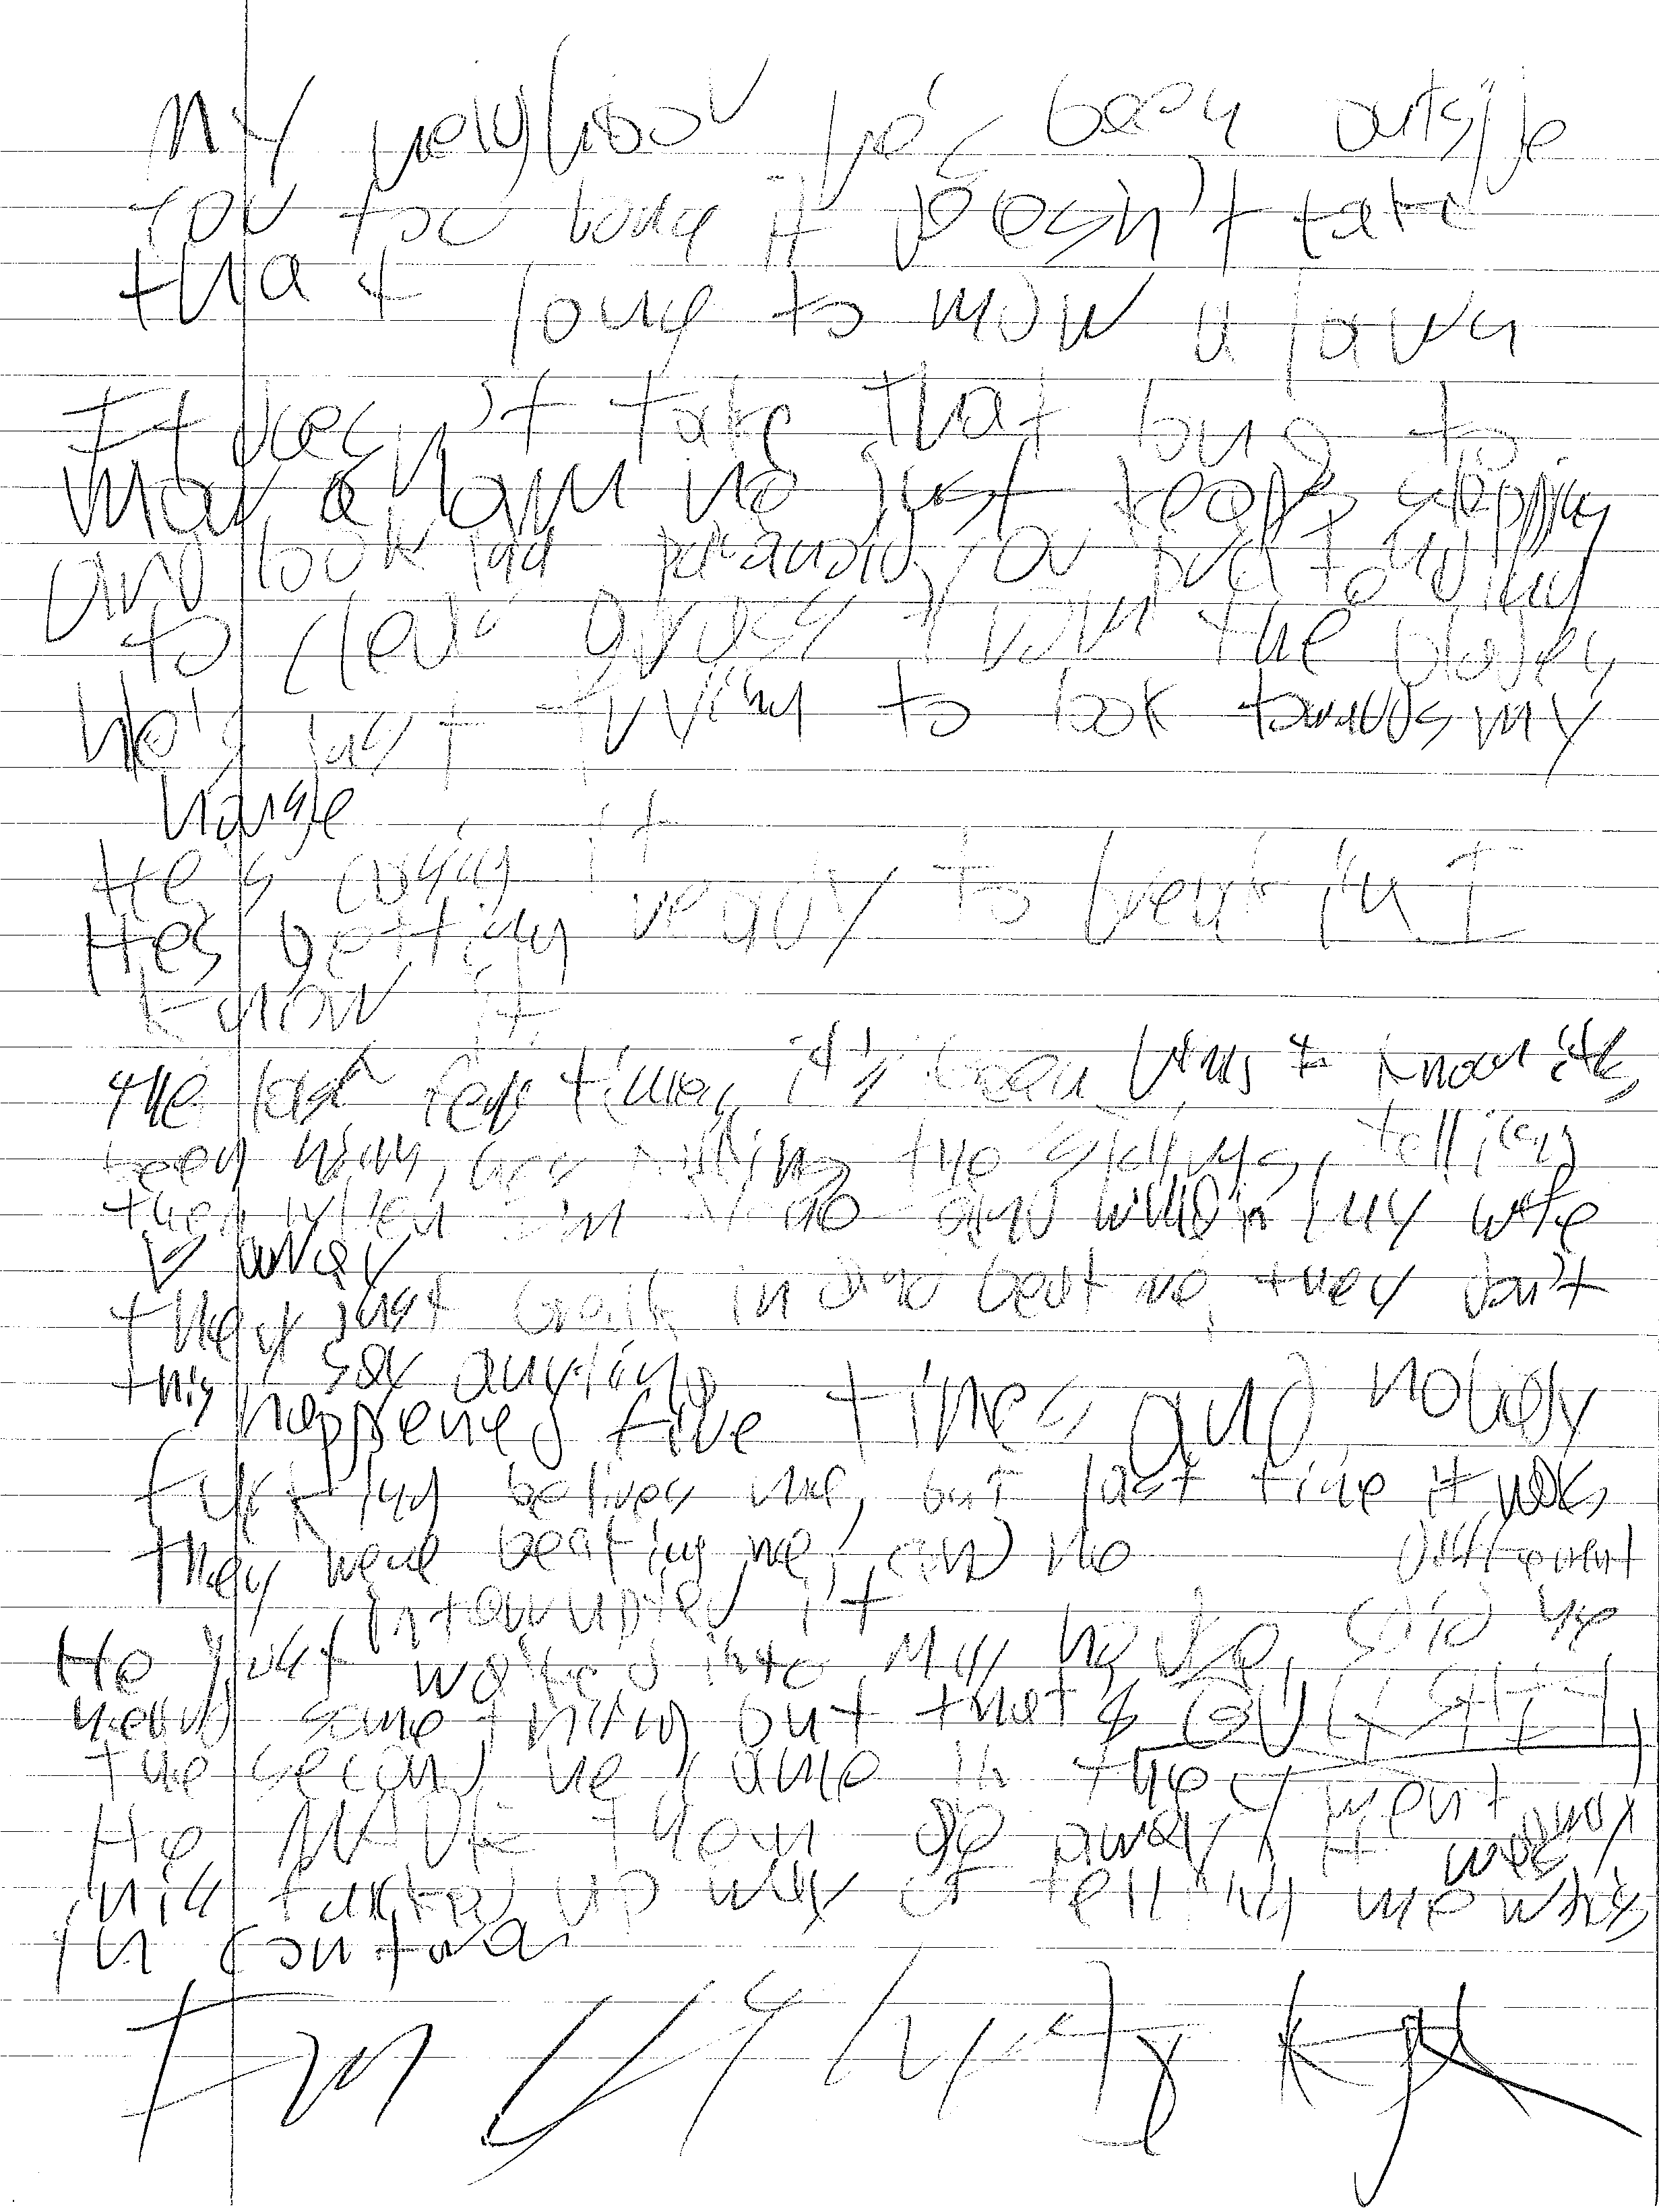 My neighbor he's been outside
for too long it doesn't take
that long to mow a lawn
It doesn't take that long to
mow a lawn he just keeps stopping
and looking paranoid, for
to clear grass from the blades
He's just trying to look towards my
house
He's doing it
He's getting ready to break in I
know it
the last few times, it's been him I know it's
been him, the telling
them when I'm and when my wife
is away
they just break in and beat me, they don't
say anything
this happened five times and nobody
fucking belives me, but last time it was
they were beating me, and he different
interrupted it
He just walked into my house, said he
heard something but that's BULLSHIT,
the second he came in they went away
He MADE them go away, it was
his fucked up way of telling me who's
in control